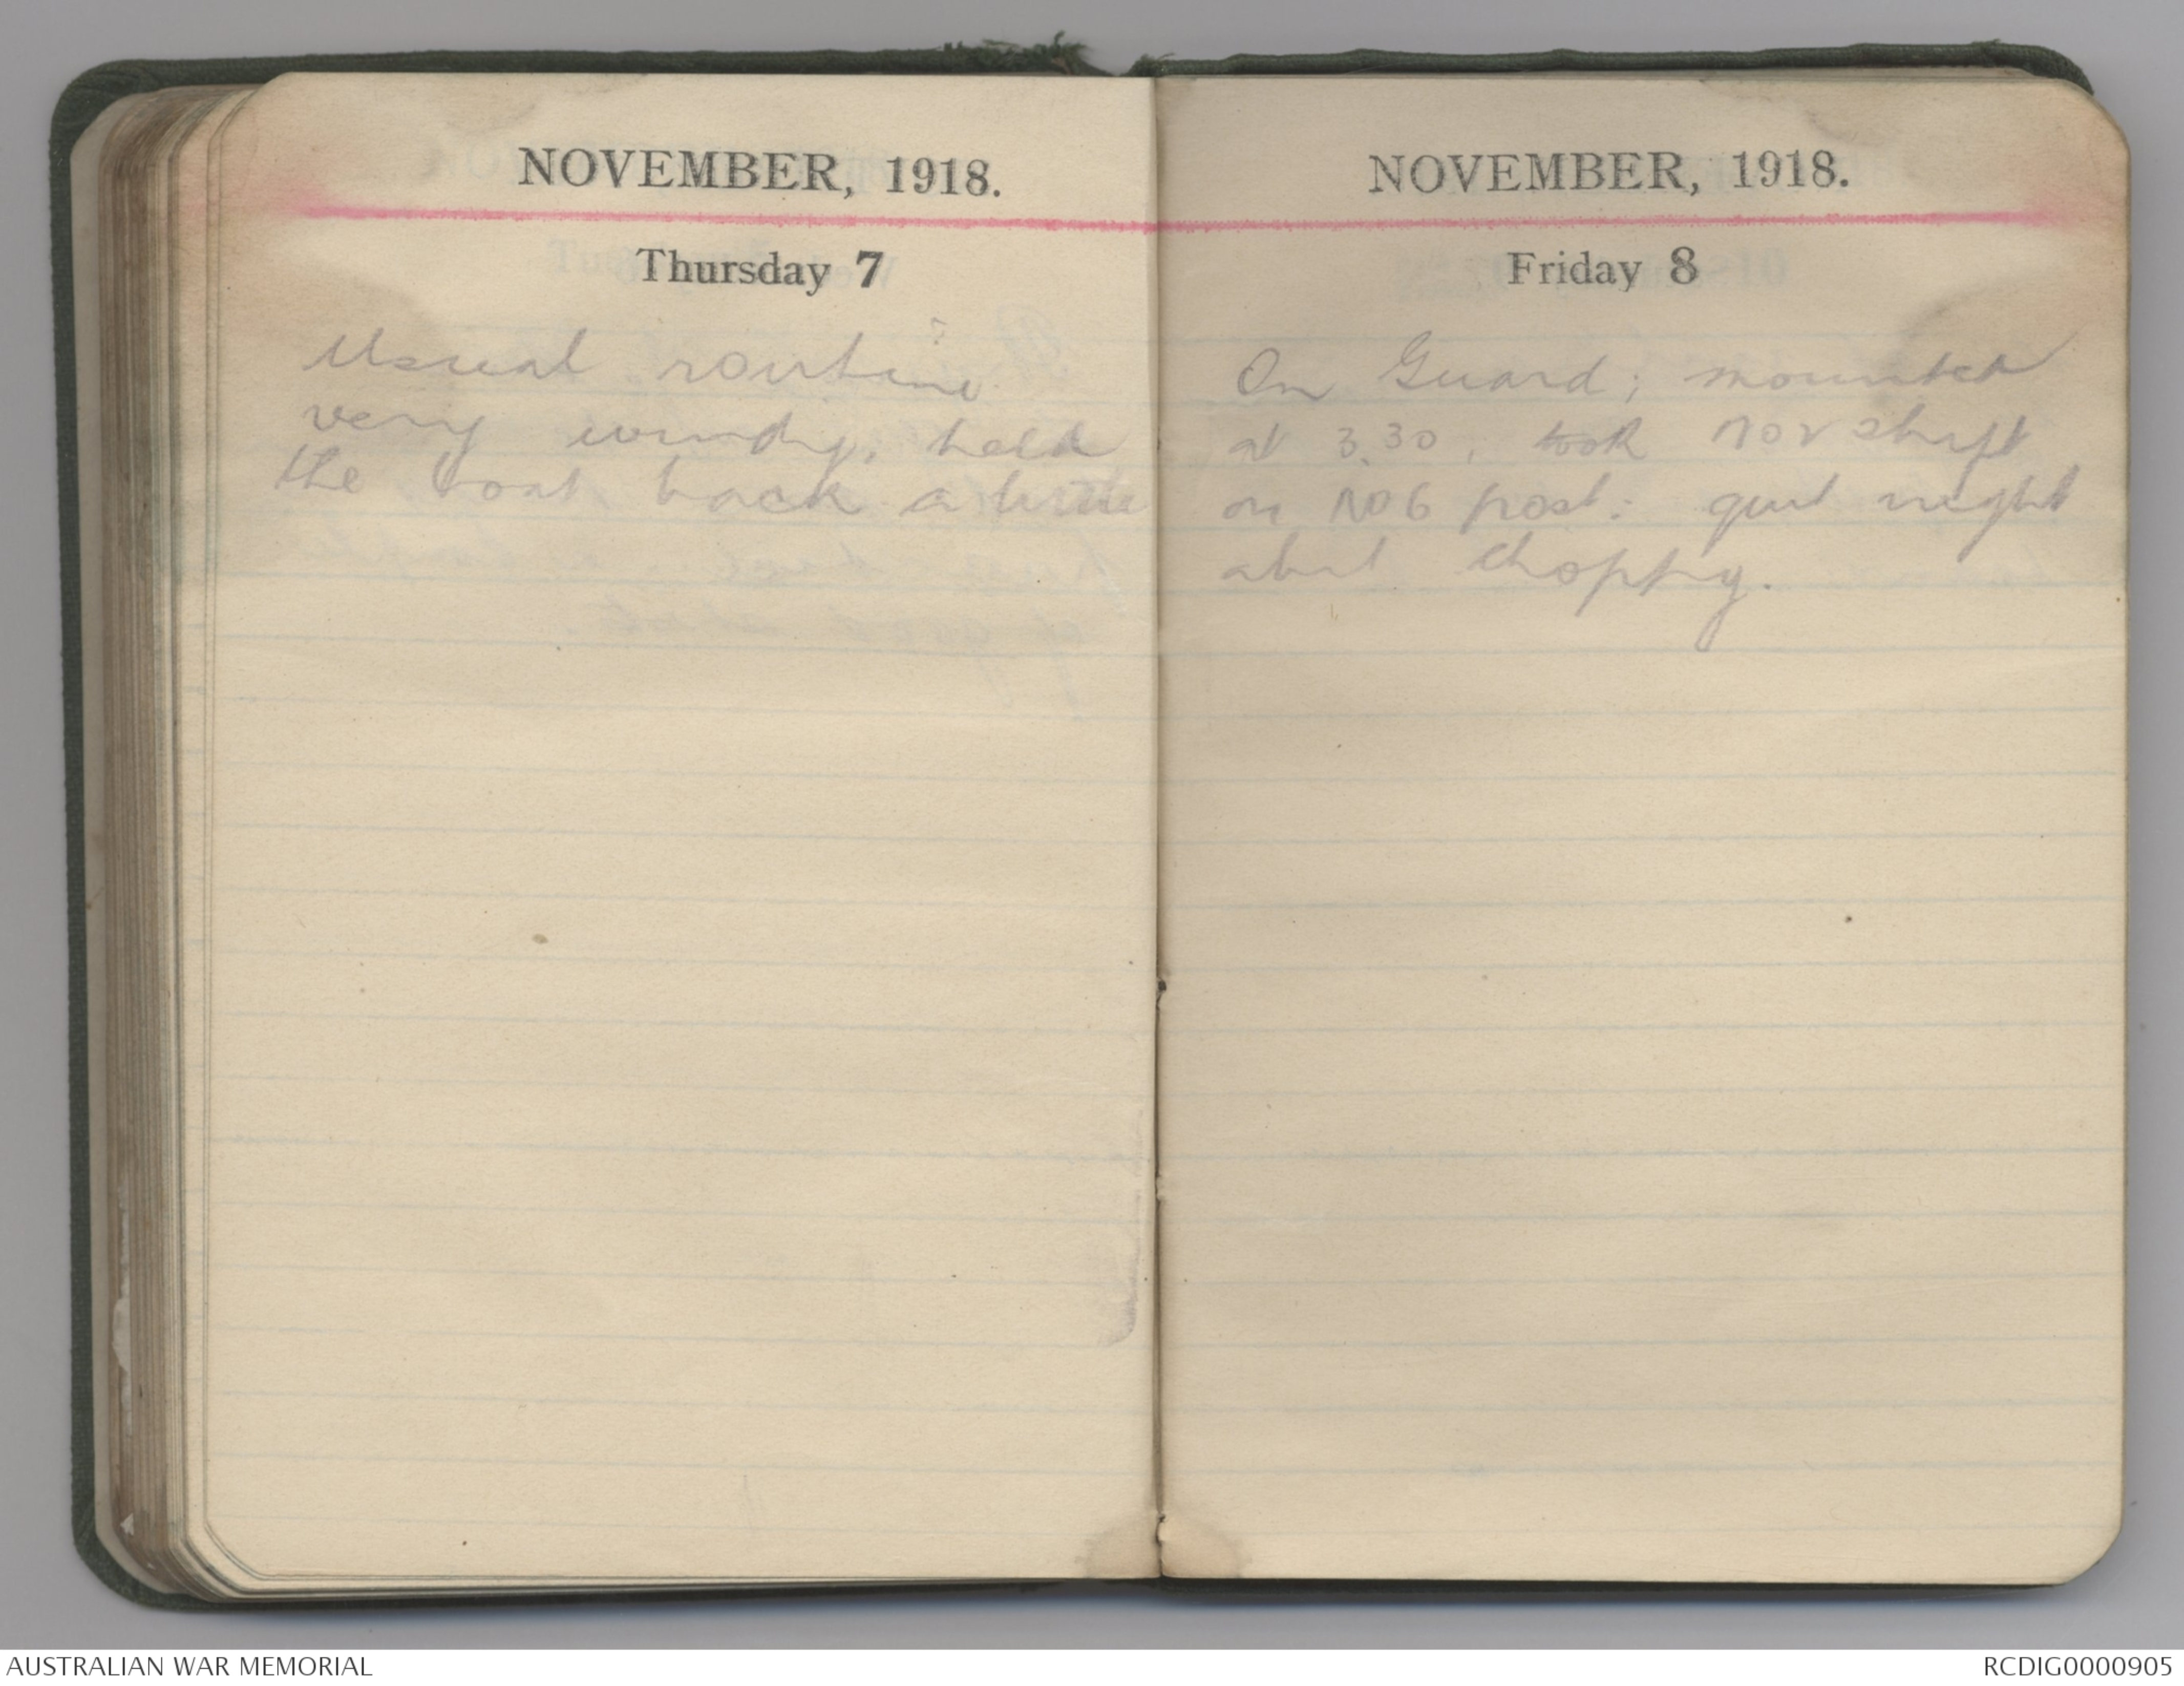 NOVEMBER, 1918.
Thursday 7
Usual routine
very windy, held
the boat back a little
NOVEMBER, 1918.
Friday 8
On Guard; mounted
at 3.30, took No 2 shift
on No 6 post: quit night
abit choppy.
AUSTRALIAN WAR MEMORIAL
RCDIG0000905